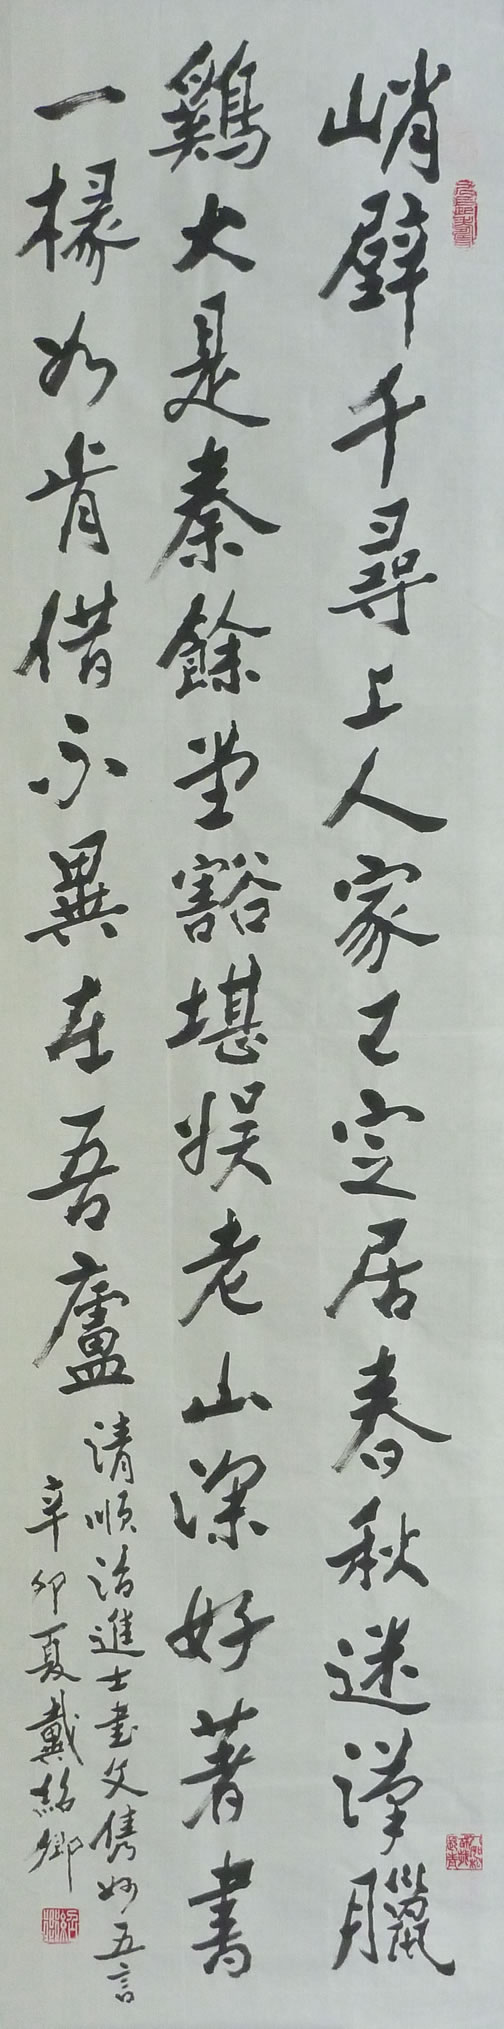 峭壁千尋上人家已定居春秋迷漢臘
鷄犬是秦餘堂豁堪娱老山深好著書
一椽如肯借不異在吾廬
清順治進士書文儁妙五言
辛卯夏戴紹卿